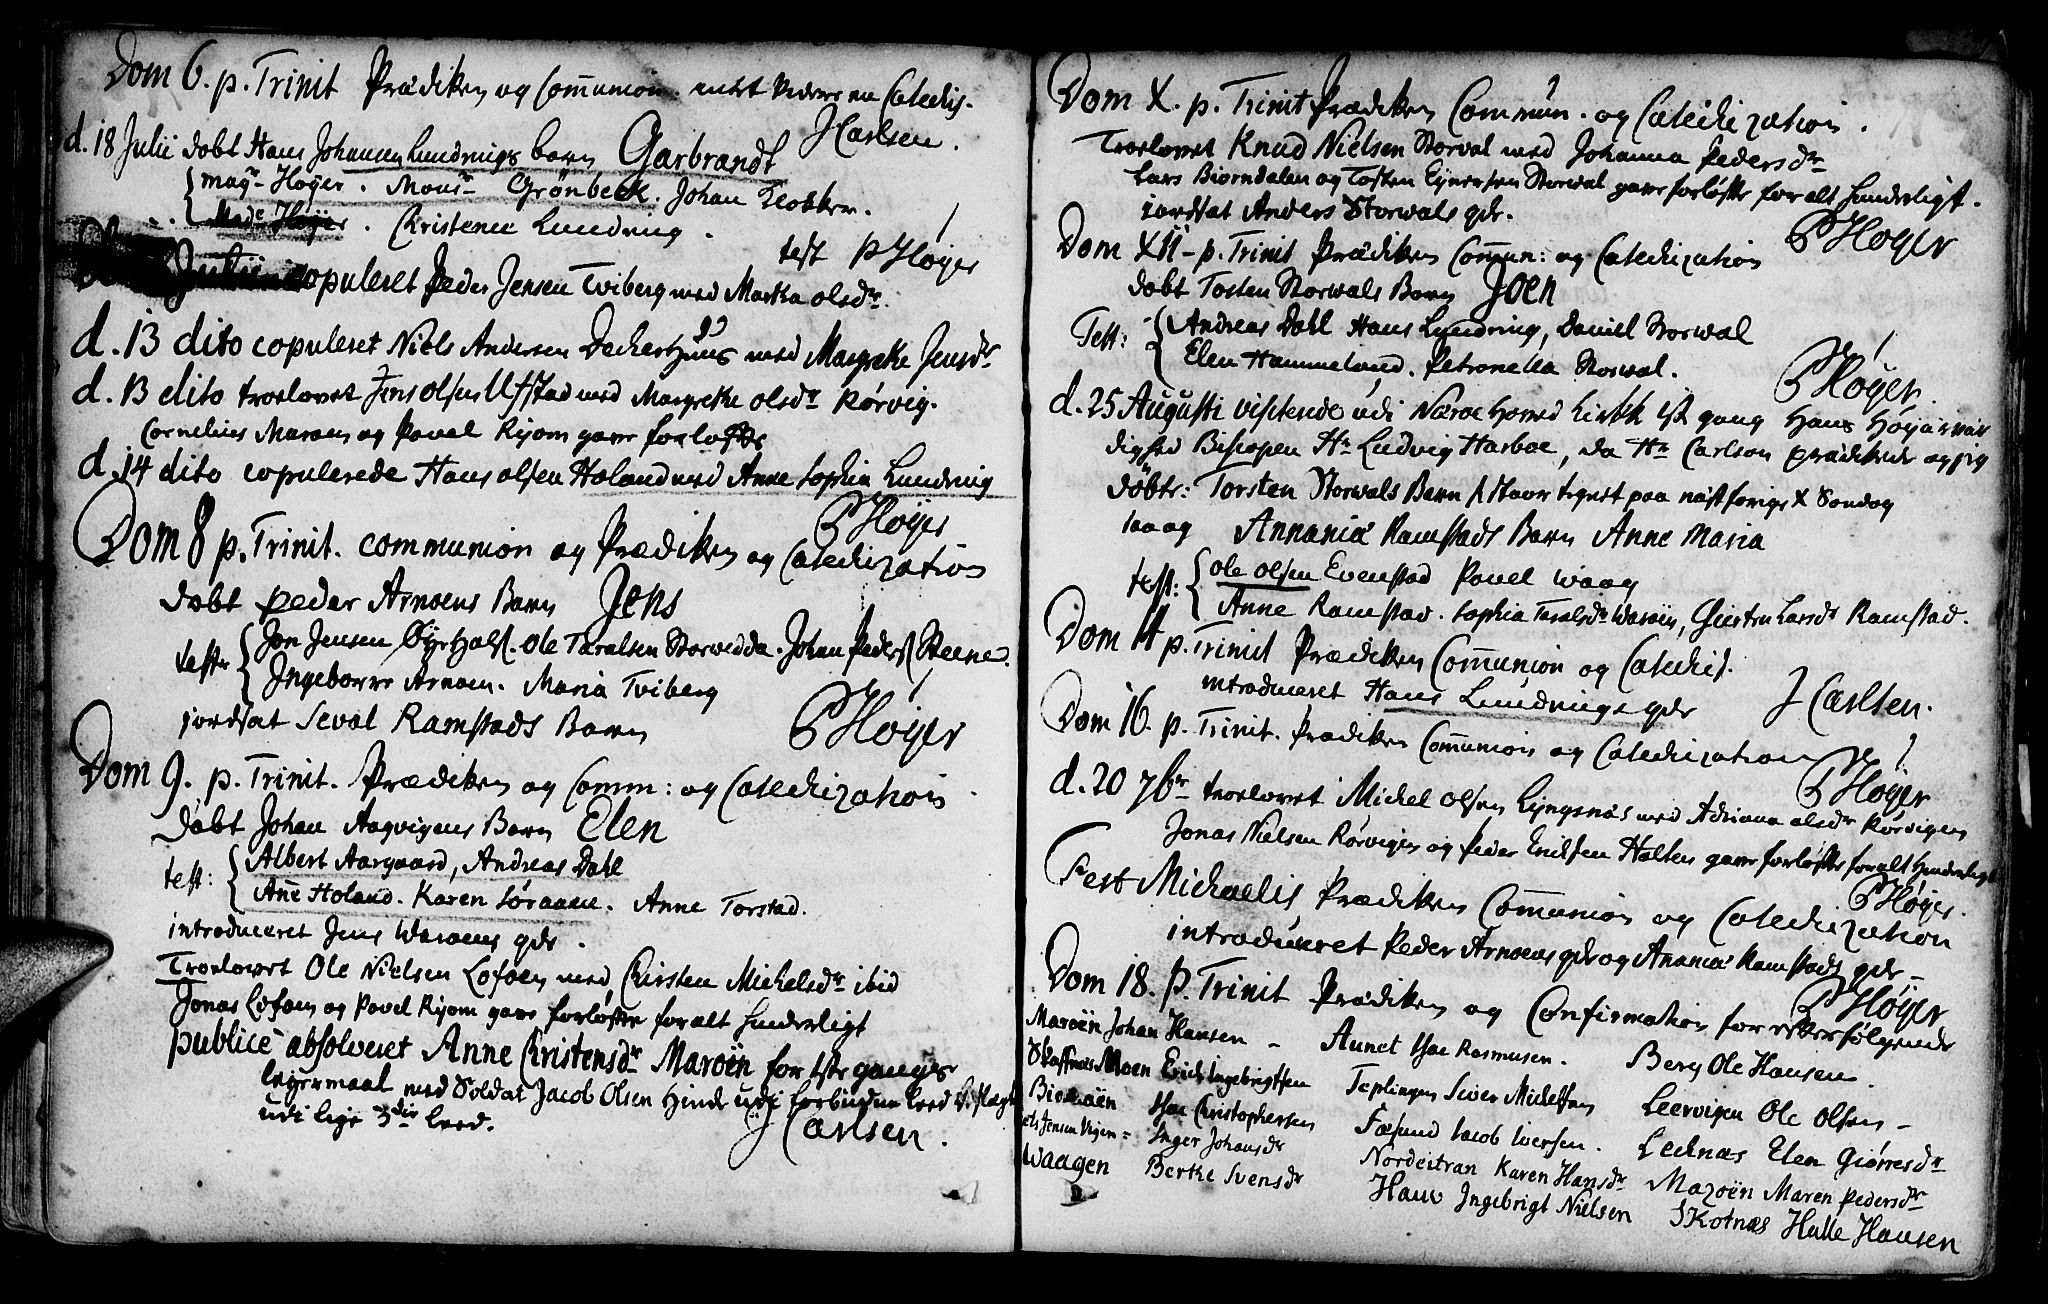 Dom 6. p. Trinit Prædiken og Communion. intet videre en Catechis.
JCarlsen.
d. 18 Julii døbt Hans Johansen Lundrings barn Garbrandt
Magr Høyer. Monsr Grønbeck. Johan Klokker.
Made Høyer. Christence Lundring.
test PHøyer
copuleret Peder Jensen Tviberg med Martha olsdr.
d. 13 dito copuleret Niels Andersen Deckerhuus med Margrethe Jensdr
d. 13 dito troelovet Jens olsen Ufstad med Margrethe olsdr Rørvig.
Cornelius Maroen og Povel Ryom gave forløfte
d. 14 dito copulerede Hans olsen Holand med Anne Sophia Lundring
PHøyer
Dom 8 p. Trinit. communion og Prædiken og Catechization
døbt peder Arnoens Barn Jens
teste Jon Jensen Øyrhals. Ole Taralsen Storvedda. Johan Peders Steene.
Ingeborre Arnoen. Maria Tviberg
jordsat Seval Ramstads Barn
PHøyer
Dom 9. p. Trinit. Prædiken og Comm: og Catechization
døbt Johan Aagvigens Barn Elen
test: Albert Aargaard, Andreas Dahl
Ane Holand. Karen Søraaen. Anne Torstad.
introduceret Jens Waroens qde.
Troelovet Ole Nielsen Lofoen med Chirsten Michelsdr ibid
Jonas Lofoen og Povel Ryom gave forløfte for alt hinderligt
publice absolveret Anne Christensdr Maroën for 1ste ganges
legermaal med Soldat Jacob Olsen Hinde udi forbuden leed
udi lige 3die leed.
JCarlsen.
Dom X. p. Trinit Prædiken Commun. og Catechization.
Troelovet Knud Nielsen Storval med Johanna Pedersdr
Lars Biørndalen og Tosten Eynersen Storwal gave forløfte for alt hinderligt.
jordsat Anders Storwals qde.
PHøyer
Dom XII p. Trinit Prædiken Commun: og Catechization
døbt Tosten Storwals Barn Joen
Test: Andreas Dahl Hans Lundring, Daniel Storwal
Elen Hammeland. Petronella Storwal.
PHøyer.
d. 25 Augusti visiterede udi Nærøe Hoved kirke 1st gang Hans Høyærvær
dighed Biscopen Hr Ludvig Harboe, da Hr Carlson prædikede og jeg
døbte: Torsten Storwals Barn
saa og Annaniæ Ramstads Barn Anne Maria
test: Ole olsen Evenstad Povel Waag
Anne Ramstad. Sophia Taralsdr Waroën, Giertru Larsdr Ramstad.
Dom 14 p. Trinit Prædiken Communion og Catechis.
introduceret Hans Lundrings qde
JCarlsen.
Dom 16. p. Trinit. Prædiken Communion og Catechization
PHøyer
d. 20 7br troelovet Michel olsen Lyngsnæs med Adriana olsdr Rørvigen
Jonas Nielsen Rørvigen og Peder Erichsen Holten gave forløfte for alt hinderligt
PHøyer.
Fest Michaelis Prædiken Communion og Catechization
introduceret Peder Arnoens qde og Ananiæ Ramstads qde
PHøyer
Dom 18. p. Trinit Prædiken og Confirmation for efterfølgende
Maroën Johan Hansen - Aunet Isac Rasmusen. Berg Ole Hansen.
Skaffnes Moen Erich Ingebrigtsen Teplingen Siver Michelsen Leervigen Ole Olsen
Isac Christophersen Føesund Iacob Iversen. Lecknæs Elen Giørresdr
Inger Johansdr Nordeitran Karen Hansdr Marøen Maren Pedersdr
Waagen Berthe Svensdr Haue Ingebrigt Nielsen Skotnæs Halle Hansen